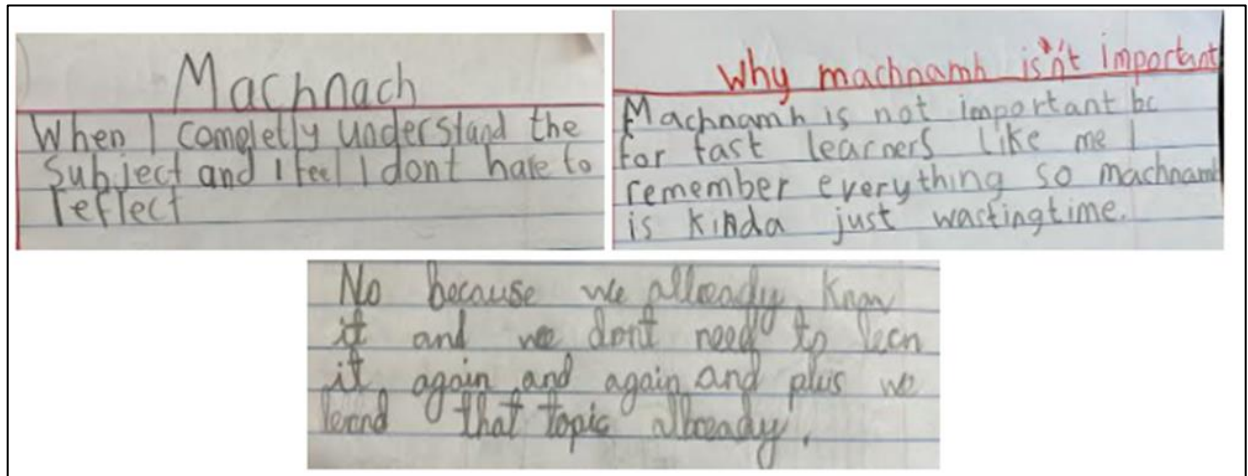 Machnach
When I completly understand the
Subject and I feel I dont have to
reflect
Why machnamh isn't important
Machnamh is not important bc
for fast learners like me I
remember everything so machnamh
is kinda just wasting time.
No because we allready know
it and we dont need to lecn
it again and again and plus we
lernd that topic allready.